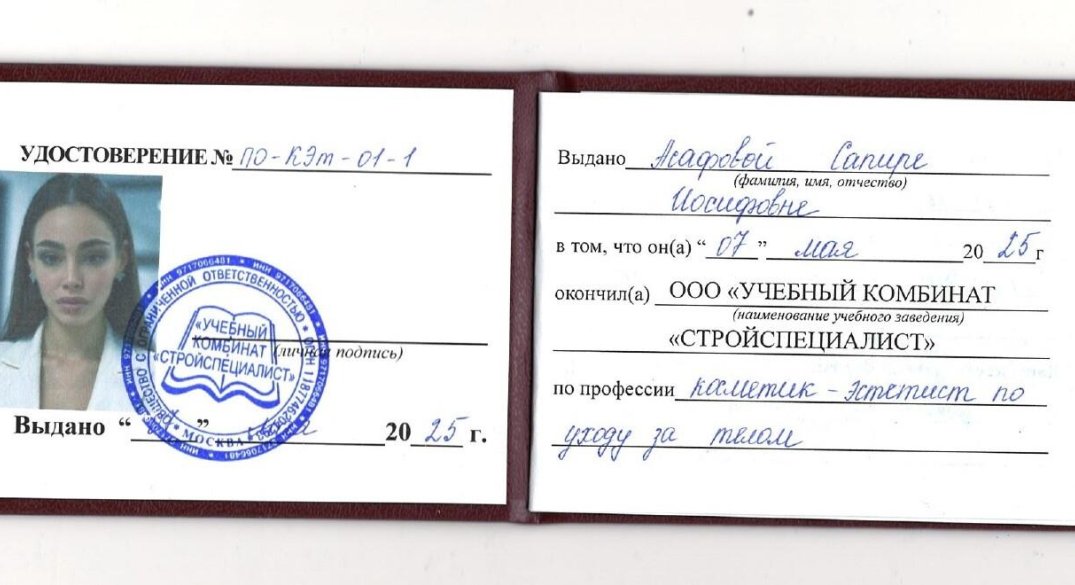 УДОСТОВЕРЕНИЕ № ПО-КЭт-01-1
«УЧЕБНЫЙ
КОМБИНАТ
«СТРОЙСПЕЦИАЛИСТ»
ОБЩЕСТВО С ОГРАНИЧЕННОЙ ОТВЕТСТВЕННОСТЬЮ
ИНН 9717066481
МОСКВА
(личная подпись)
Выдано “ ” 2025 г.
Выдано Асафовой Сапире
(фамилия, имя, отчество)
Иосифовне
в том, что он(а) “07” мая 2025г
окончил(а) ООО «УЧЕБНЫЙ КОМБИНАТ
(наименование учебного заведения)
«СТРОЙСПЕЦИАЛИСТ»
по профессии косметик-эстетист по
уходу за телом